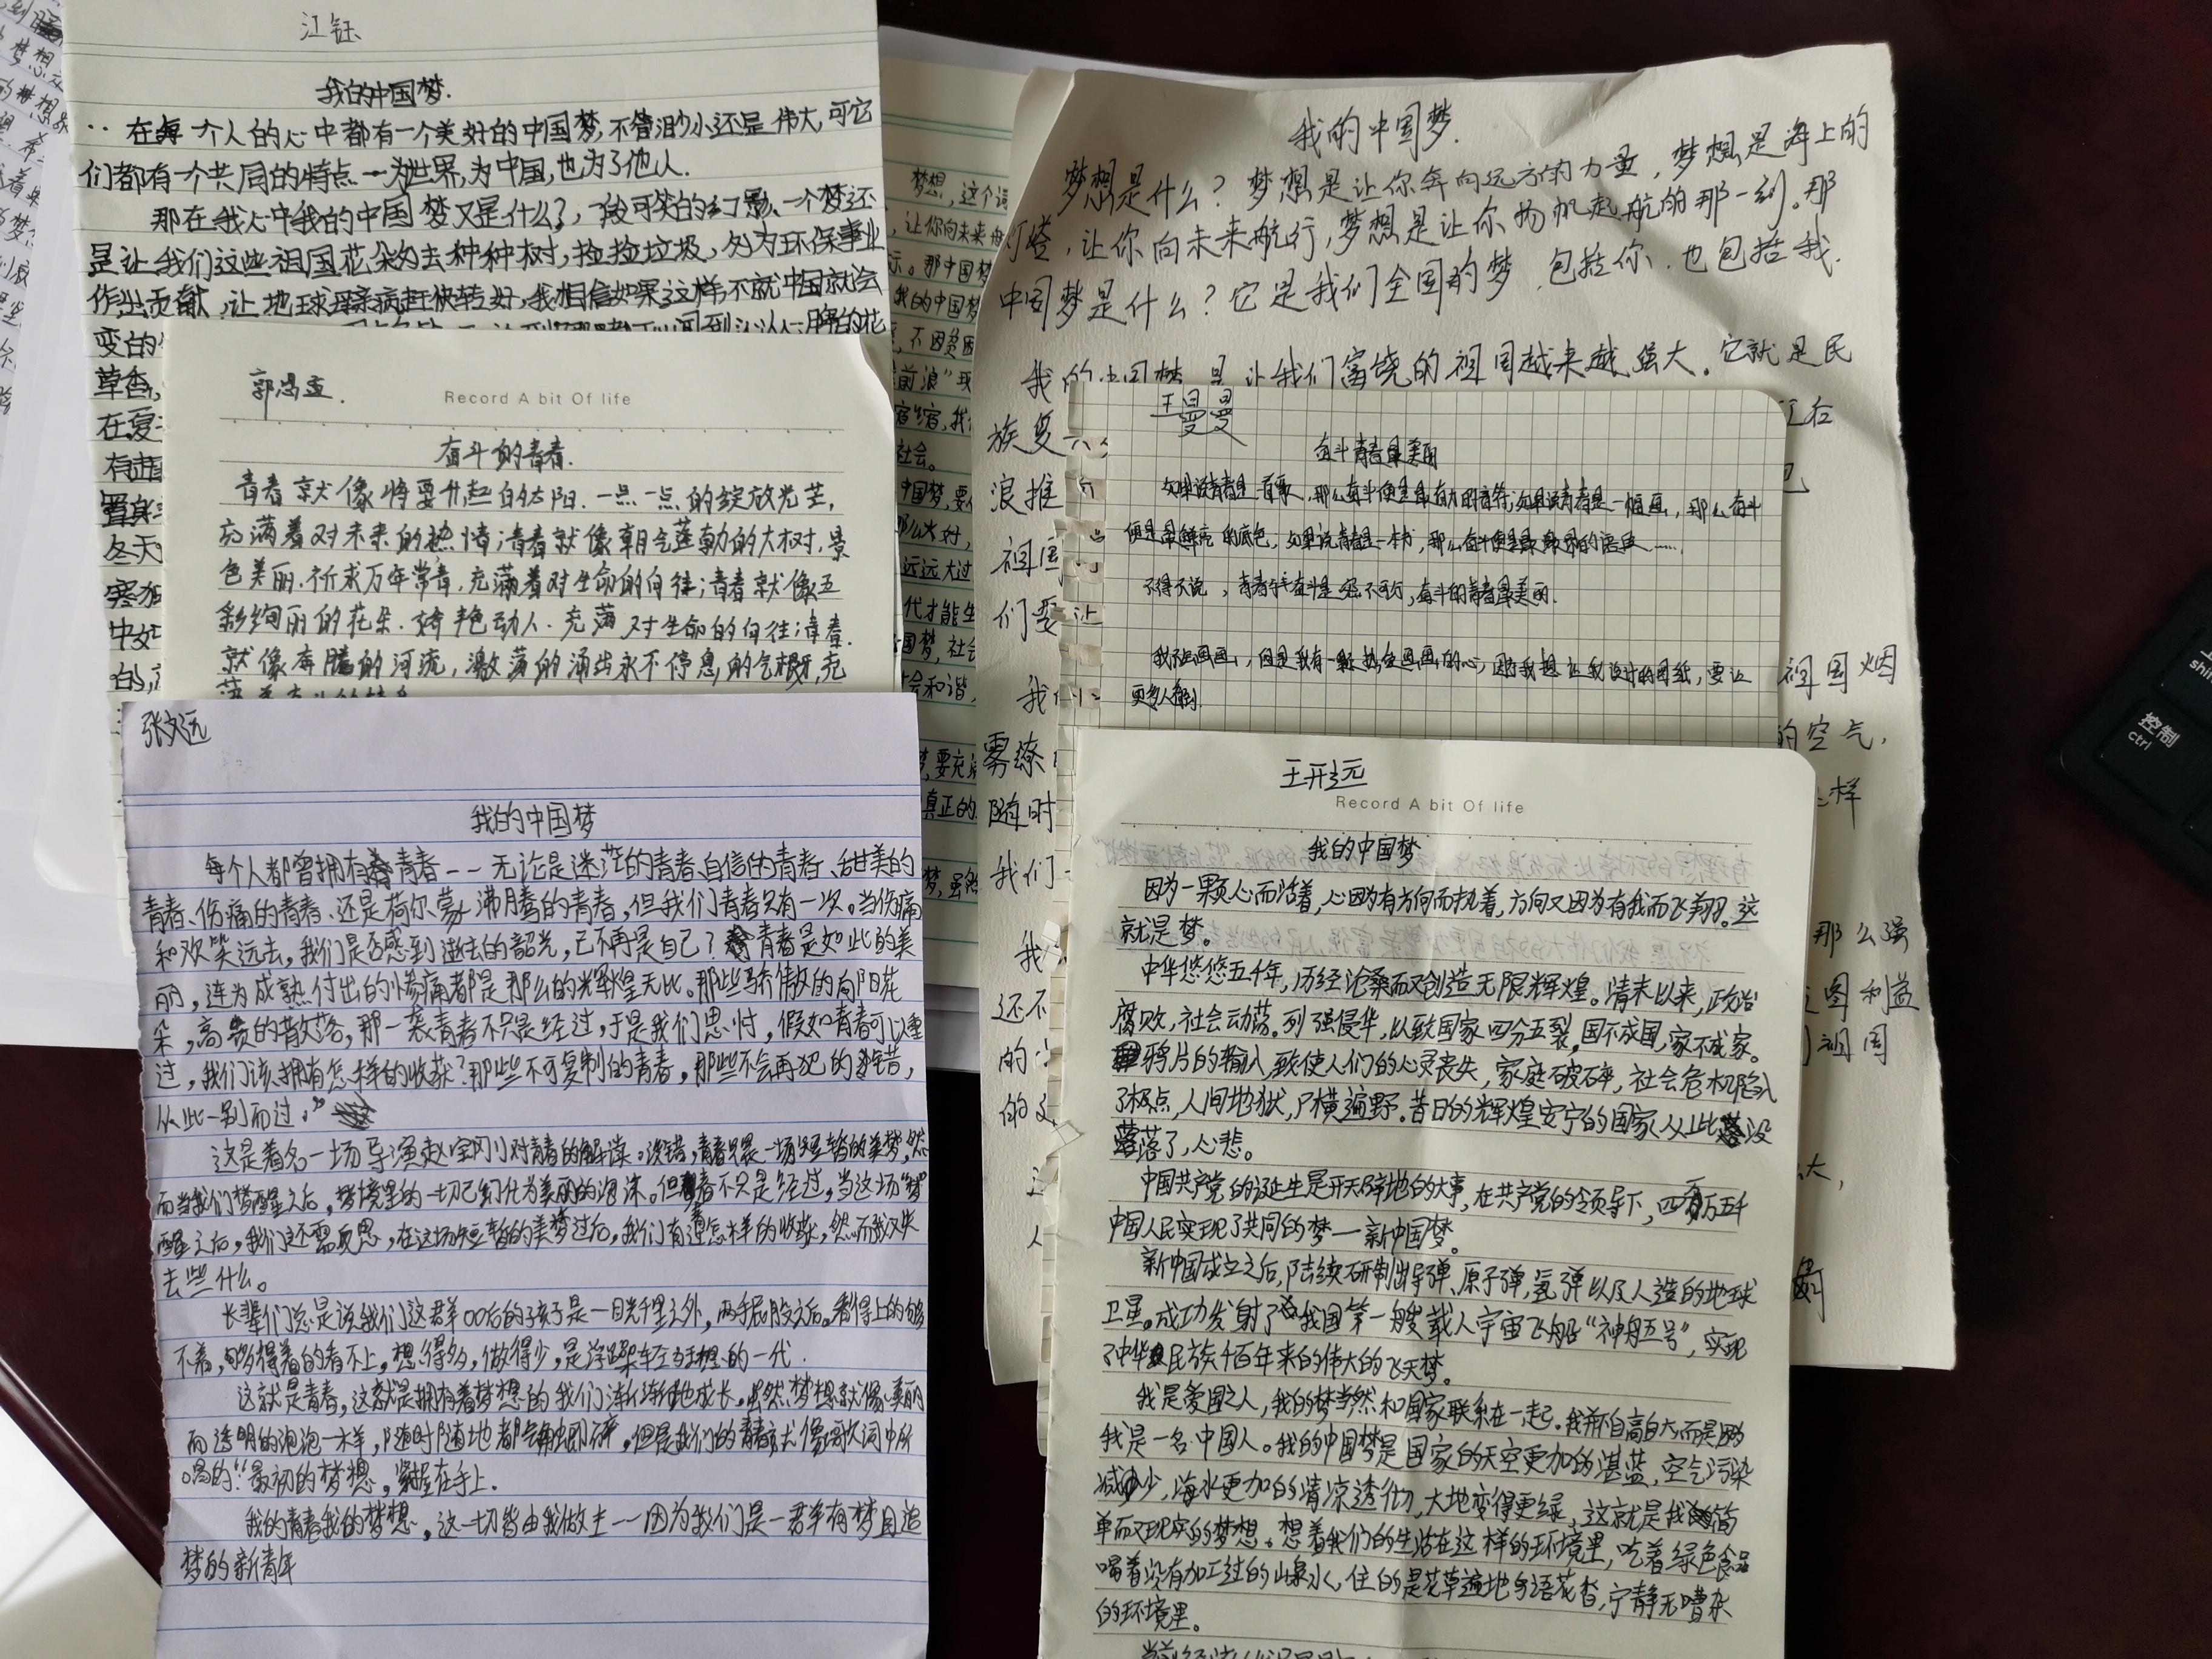 江钰
我的中国梦.
在每一个人的心中都有一个美好的中国梦,不管渺小还是伟大,可它
们都有一个共同的特点一为世界,为中国,也为了他人.
那在我心中我的中国梦又是什么了,
是让我们这些祖国花朵们去种种树,捡捡垃圾,为环保事业
作出贡献,让地球母亲病赶快转好,我相信如果这样,不就中国就会
变的
草香,
冬天
Record A bit Of life
奋斗的青春.
青春就像将要升起的太阳.一点一点的绽放光芒,
充满着对未来的热情;青春就像朝气蓬勃的大树,景
色美丽.祈求万年常青.充满着对生命的向往;青春就像五
彩绚丽的花朵.娇艳动人.充满对生命的向往;青春.
就像奔腾的河流,激荡的涌出永不停息的气概,充
张文远
我的中国梦
每个人都曾拥有青春--无论是迷茫的青春、自信的青春、甜美的
青春、伤痛的青春、还是荷尔蒙沸腾的青春,但我们青春只有一次。当伤痛
和欢笑远去,我们是否感到逝去的韶光,已不再是自己?青春是如此的美
丽,连为成熟付出的惨痛都是那么的辉煌无比。那些骄傲的向阳花
朵,高贵的散落,那一袭青春不只是经过,于是我们思忖,假如青春可以重
过,我们该拥有怎样的收获?那些不可复制的青春,那些不会再犯的错,
从此一别而过。”
这是著名一场导演赵宝刚对青春的解读。没错,青春只是一场短暂的美梦,然
而当我们梦醒之后,梦境里的一切已幻化为美丽的泡沫。但青春不只是经过,当这场“梦”
醒之后,我们还需反思,在这场短暂的美梦过后,我们有着怎样的收获,然而我又失
去些什么。
长辈们总是说我们这群00后的孩子是一目光千里之外,两手屁股之后。看得上的够
不着,够得着的看不上,想得多,做得少,是浮躁轻狂的一代.
这就是青春,这就是拥有着梦想的我们渐渐地成长。虽然,梦想就像美丽
而透明的泡泡一样,随时随地都会触即碎,但是我们的青春就像歌词中所
唱的“最初的梦想,紧握在手上.
我的青春我的梦想,这一切皆由我做主--因为我们是一群有梦且追
梦的新青年
梦想,这个词
,让你向未来
那中国梦
我的中国梦
前浪”我
社会。
中国梦,要
那么大对,
远远大过
代才能生
国梦,社会
会和谐,
要充
真正的
梦,虽然
我的中国梦.
梦想是什么?梦想是让你奔向远方的力量,梦想是海上的
灯塔,让你向未来航行,梦想是让你扬帆起航的那一刻。那
中国梦是什么?它是我们全国的梦,包括你,也包括我.
我的中国梦是让我们富饶的祖国越来越强大.它就是民
族复
浪推
祖国
们要让
祖国烟
雾缭
的空气,
随时
样
我们
那么强
还不
图利益
的
祖国
王曼曼
奋斗青春最美丽
如果说青春是一首歌,那么奋斗便是最有力的音符;如果说青春是一幅画,那么奋斗
便是最鲜亮的底色,如果说青春是一本书,那么奋斗便是最的语……
不得不说,青春与奋斗是密不可分,奋斗的青春最美丽.
我不会画画,但是我有一颗热爱画画的心,因为我想让我设计的图纸,要让
更多人看到.
王开远
Record A bit Of life
我的中国梦
因为一颗心而活着,心因为有方向而执着,方向又因为有我而飞翔。这
就是梦。
中华悠悠五千年,历经沧桑而又创造无限辉煌。清末以来,政治
腐败,社会动荡。列强侵华,以致国家四分五裂,国不成国,家不成家。
鸦片的输入,致使人们的心灵丧失,家庭破碎,社会危机陷入
了极点,人间地狱,尸横遍野.昔日的辉煌安宁的国家从此没
落了,心悲。
中国共产党的诞生是开天辟地的大事,在共产党的领导下,四万万五千
中国人民实现了共同的梦一新中国梦。
新中国成立之后,陆续研制出导弹、原子弹,氢弹以及人造的地球
卫星。成功发射了我国第一艘载人宇宙飞船“神舟五号”,实现
了中华民族千百年来的伟大的飞天梦。
我是爱国之人,我的梦当然和国家联系在一起.我并不自高自大而是因为
我是一名中国人。我的中国梦是国家的天空更加的湛蓝,空气污染
减少,海水更加的清凉透彻,大地变得更绿,这就是我简
单而又现实的梦想。想着我们的生活在这样的环境里,吃着绿色食品
喝着没有加工过的山泉水,住的是花草遍地鸟语花香,宁静无嘈杂
的环境里。
控制
ctrl